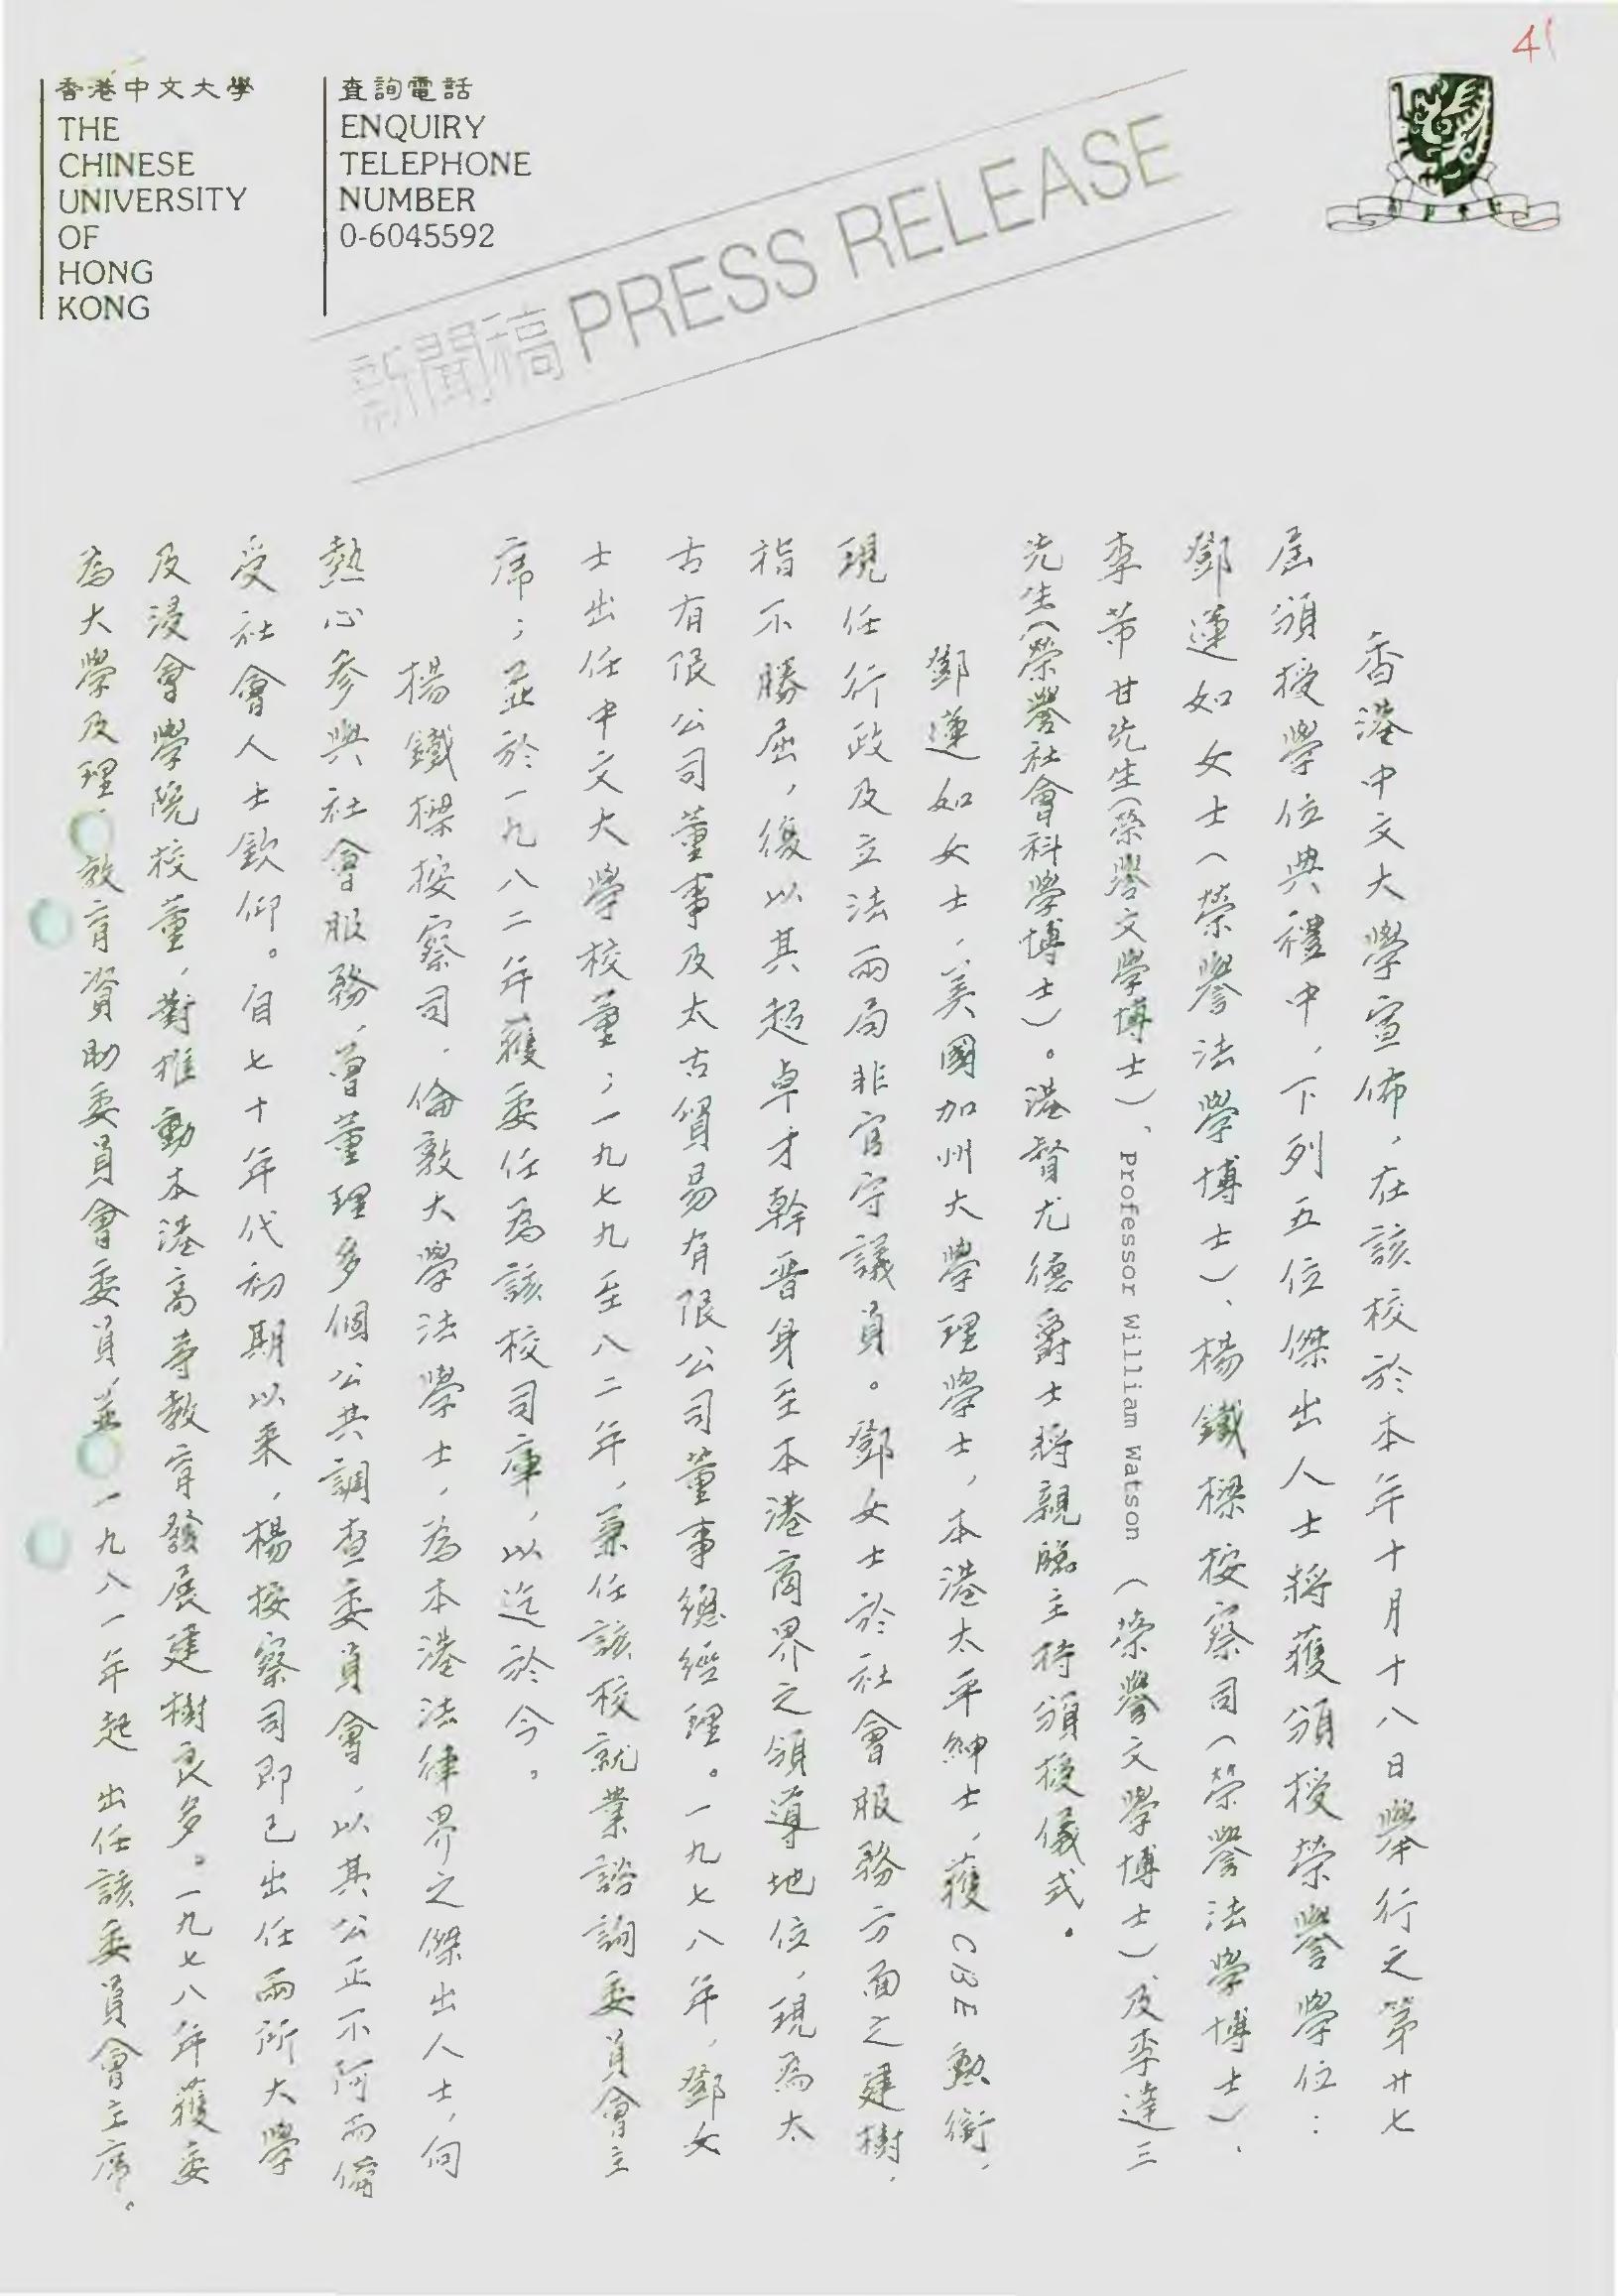 41
香港中文大學
THE
CHINESE
UNIVERSITY
OF
HONG
KONG
查詢電話
ENQUIRY
TELEPHONE
NUMBER
0-6045592
新聞稿 PRESS RELEASE
香港中文大學宣佈，在該校於本年十月十八日舉行之第廿七
屆頒授學位典禮中，下列五位傑出人士將獲頒授榮譽學位：
鄧蓮如女士（榮譽法學博士）、楊鐵樑按察司（榮譽法學博士）、
李芾甘先生（榮譽文學博士）、Professor William Watson（榮譽文學博士）及李達三
先生（榮譽社會科學博士）。港督尤德爵士將親臨主持頒授儀式。
鄧蓮如女士，美國加州大學理學士，本港太平紳士，獲CBE勳銜，
現任行政及立法兩局非官守議員。鄧女士於社會服務方面之建樹，
指不勝屈，復以其超卓才幹晋身至本港商界之領導地位，現為太
古有限公司董事及太古貿易有限公司董事總經理。一九七八年，鄧女
士出任中文大學校董；一九七九至八二年，兼任該校就業諮詢委員會主
席；並於一九八二年獲委任為該校司庫，以迄於今。
楊鐵樑按察司，倫敦大學法學士，為本港法律界之傑出人士，向
熱心參與社會服務，曾董理多個公共調查委員會，以其公正不阿而備
受社會人士欽仰。自七十年代初期以來，楊按察司即已出任兩所大學
及浸會學院校董，對推動本港高等教育發展建樹良多。一九七八年獲委
為大學及理工教育資助委員會委員，並一九八一年起出任該委員會主席。